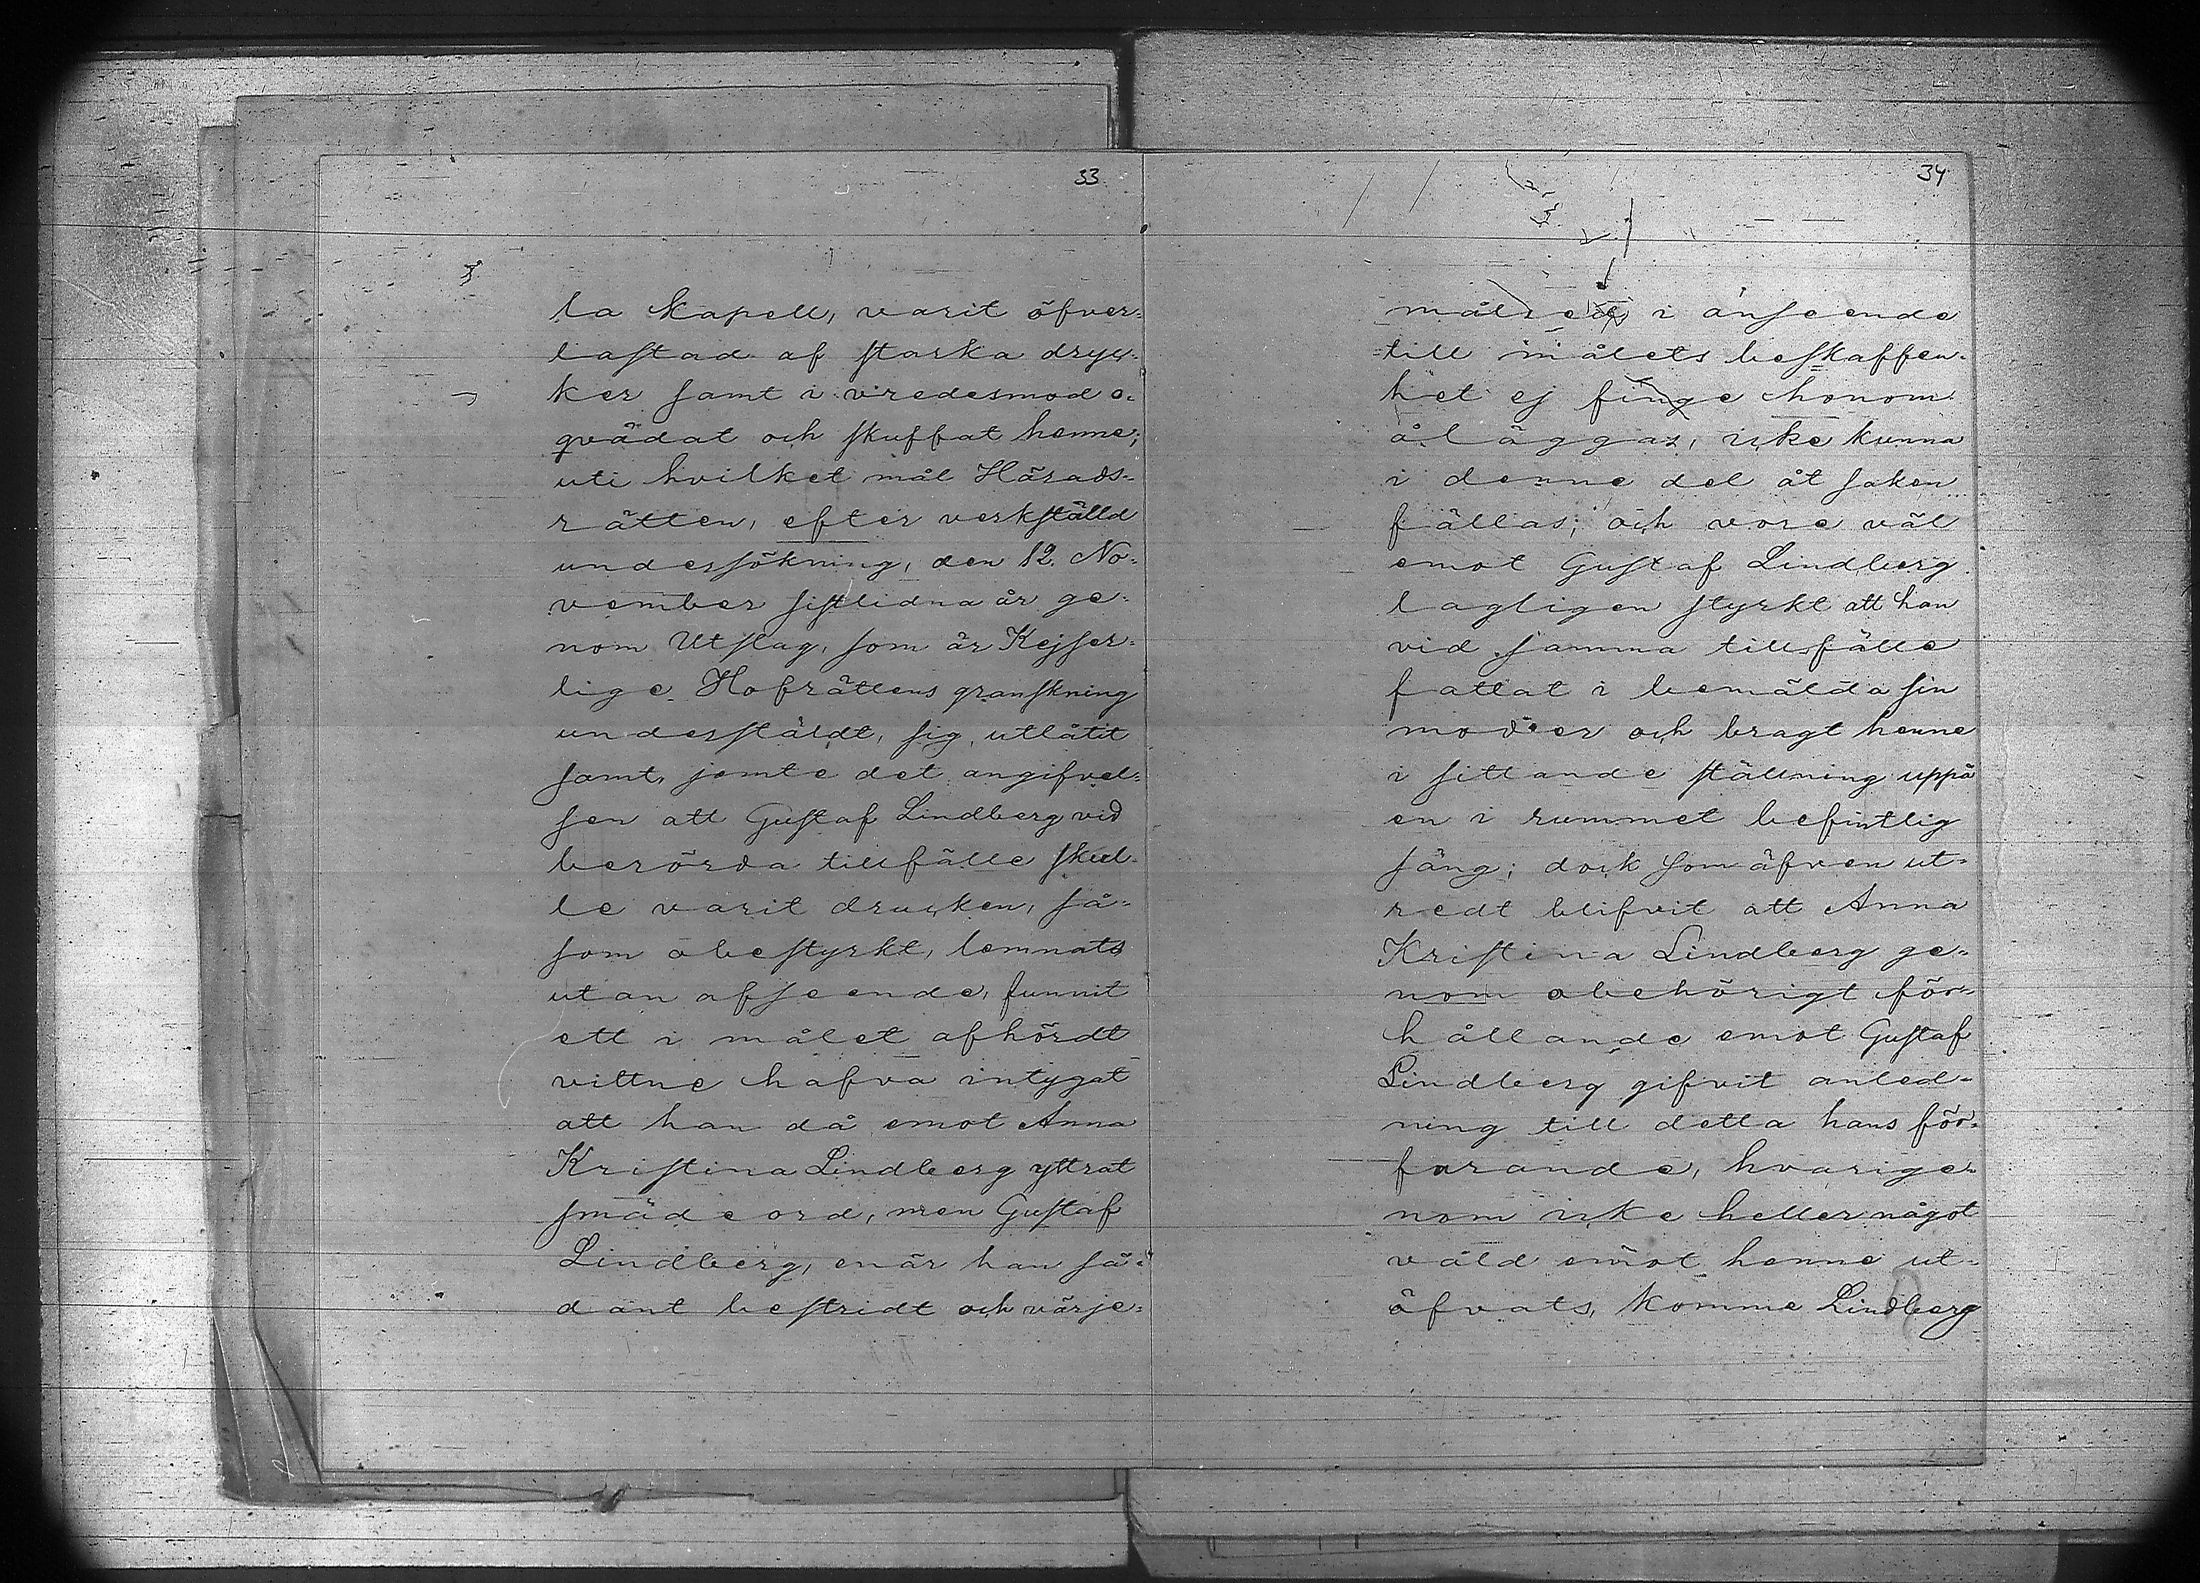 33
la kapell, varit öfver-
lastad af starka dryc-
ker samt i vredesmod o-
qvädat och skuffat henne;
uti hvilket mål Härads-
rätten, efter verkställd
undersökning, den 12 No-
vember sistlidna år ge-
nom Utslag, som är Kejser-
lige Hofrättens granskning
underställdt, sig utlåtit
samt, jemte det angifvel-
sen att Gustaf Lindberg vid
berörda tillfälle skul-
le varit drucken, så-
som obestyrkt, lemnats
utan afseende, funnit
ett i målet afhördt
vittne hafva intygat
att han då emot Anna
Kristina Lindberg yttrat
smädeord, men Gustaf
Lindberg, enär han så-
dant bestridt och värje-
34
målsed i anseende
till målets beskaffen-
het ej finge honom
åläggas, icke kunna
i denne del åt saken
fällas; och vore väl
emot Gustaf Lindberg
lagligen styrkt att han
vid samma tillfälle
fattat i bemälda sin
moder och bragt henne
i sittande ställning uppå
en i rummet befintlig
säng; dock som äfven ut-
redt blifvit att Anna
Kristina Lindberg ge-
nom obehörigt för-
hållande emot Gustaf
Lindberg gifvit anled-
ning till detta hans för-
farande, hvarige-
nom icke heller något
våld emot henne ut-
öfvats, komme Lindberg